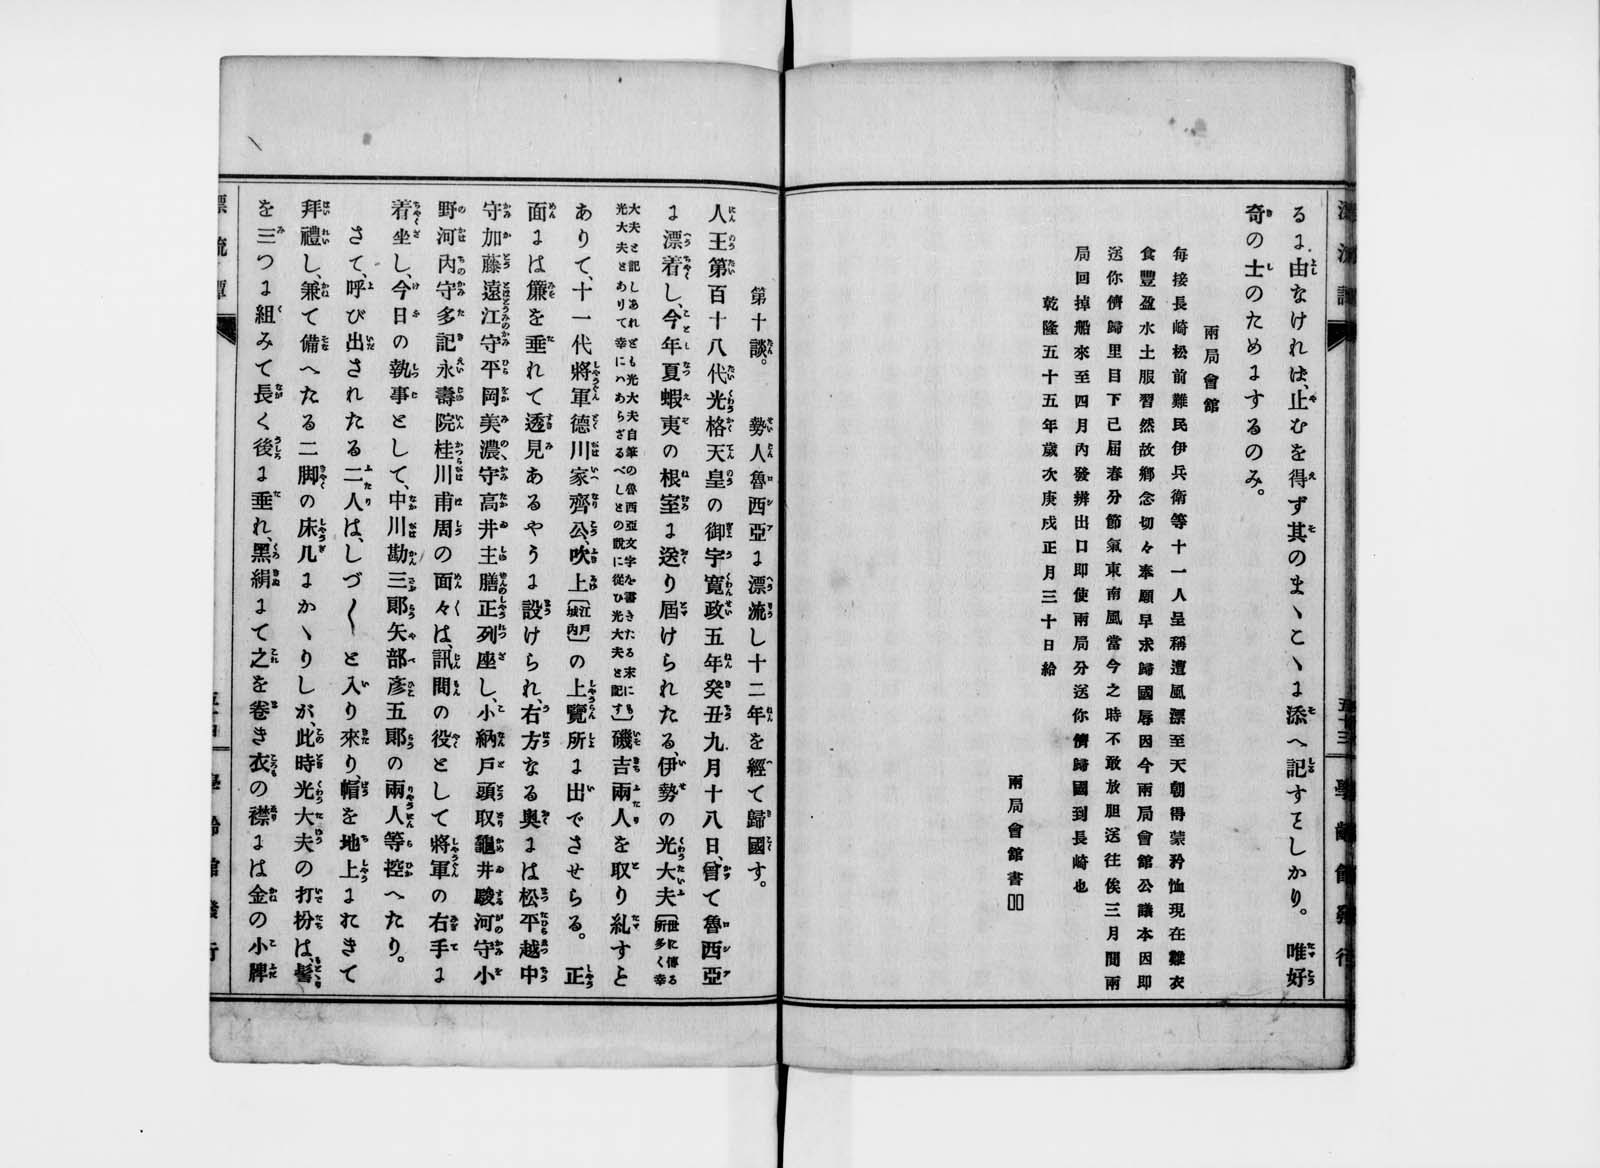 るに由なけれは、止むを得ず其のまゝこゝに添へ記すことしかり。唯好
奇の士のためにするのみ。
兩局會館
每接長崎松前難民伊兵衛等十一人呈稱遭風漂至天朝得蒙矜恤現在難衣
食豐盈水土服習然故鄉念切々奉願早求歸國辱因今兩局會館公議本因即
送你儕歸里目下已届春分節氣東南風當今之時不敢放胆送往俟三月間兩
局回掉船來至四月內發辨出口即使兩局分送你儕歸國到長崎也
乾隆五十五年歲次庚戌正月三十日給
兩局會館書
五十三
第十談。 勢人魯西亞に漂流し十二年を經て歸國す。
人王第百十八代光格天皇の御宇寬政五年癸丑九月十八日、曾て魯西亞
に漂着し、今年夏蝦夷の根室に送り屆けられたる、伊勢の光大夫〔世に傳る所多く幸
大夫と記しあれども光大夫自筆の魯西亞文字を書きたる末にも
光大夫とありて幸にハあらざるべしとの說に從ひ光大夫と記す〕磯吉兩人を取り糺すと
ありて、十一代將軍德川家齊公、吹上〔江戶城內〕の上覽所に出でさせらる。正
面には簾を垂れて透見あるやうに設けられ、右方なる奥には松平越中
守加藤遠江守平岡美濃、守高井主膳正列座し、小納戶頭取龜井駿河守小
野河內守多記永壽院桂川甫周の面々は、訊問の役として將軍の右手に
着坐し、今日の執事として、中川勘三郞矢部彥五郞の兩人等控へたり。
さて、呼び出されたる二人は、しづ〱と入り來り、帽を地上におきて
拜禮し、兼て備へたる二脚の床几にかゝりしが、此時光大夫の打扮は、髻
を三つに組みて長く後に垂れ、黑絹にて之を卷き衣の襟には金の小牌
漂流譚